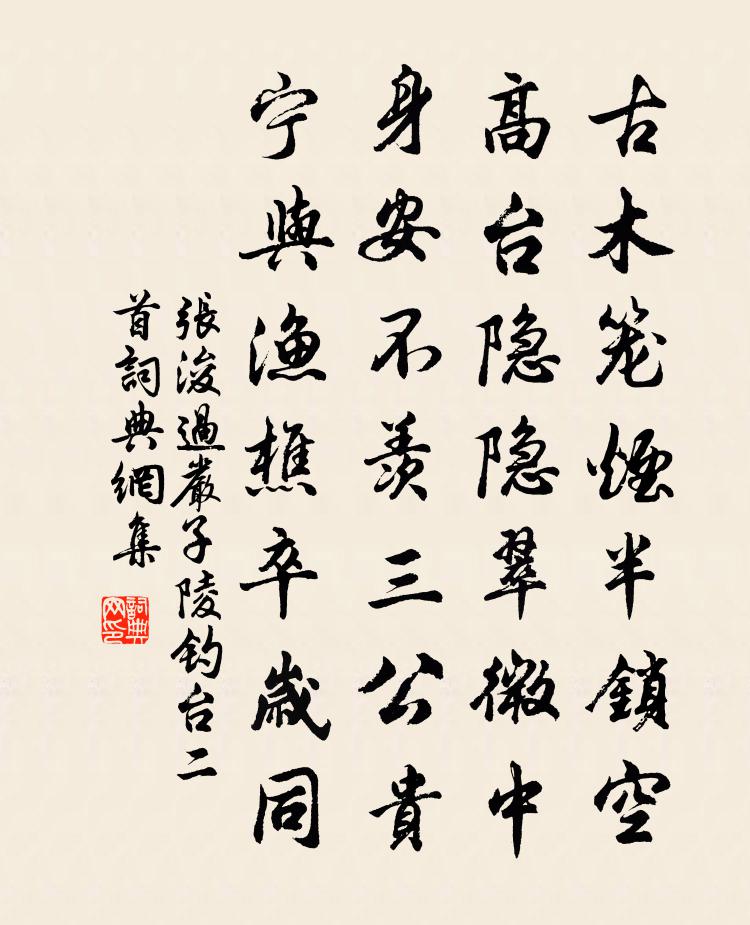 古木笼煙半鎖空
高台隐隐翠微中
身安不羨三公貴
宁與漁樵卒歲同
張浚過嚴子陵釣台二
首詞典網集
詞典
网印